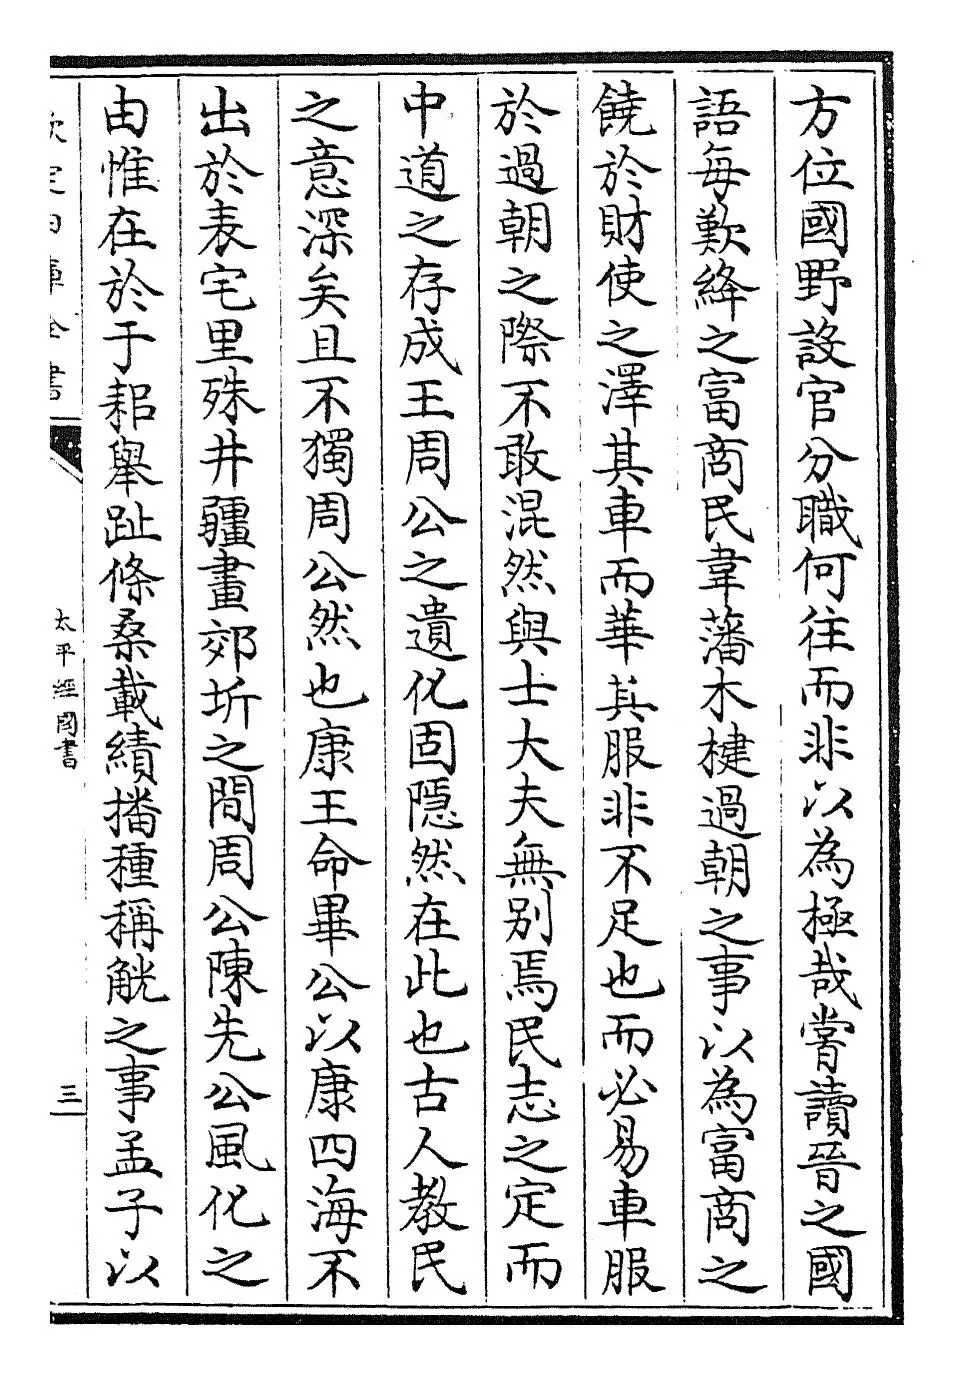 方位國野設官分職何往而非以為極哉嘗讀晉之國
語每歎絳之富商民韋藩木楗過朝之事以為富商之
饒於財使之澤其車而華其服非不足也而必易車服
於過朝之際不敢混然與士大夫無别焉民志之定而
中道之存成王周公之遺化固隱然在此也古人教民
之意深矣且不獨周公然也康王命畢公以康四海不
出於表宅里殊井疆畫郊圻之間周公陳先公風化之
由惟在於于耜舉趾條桑載績播種稱觥之事孟子以
欽定四庫全書
太平經國書
三